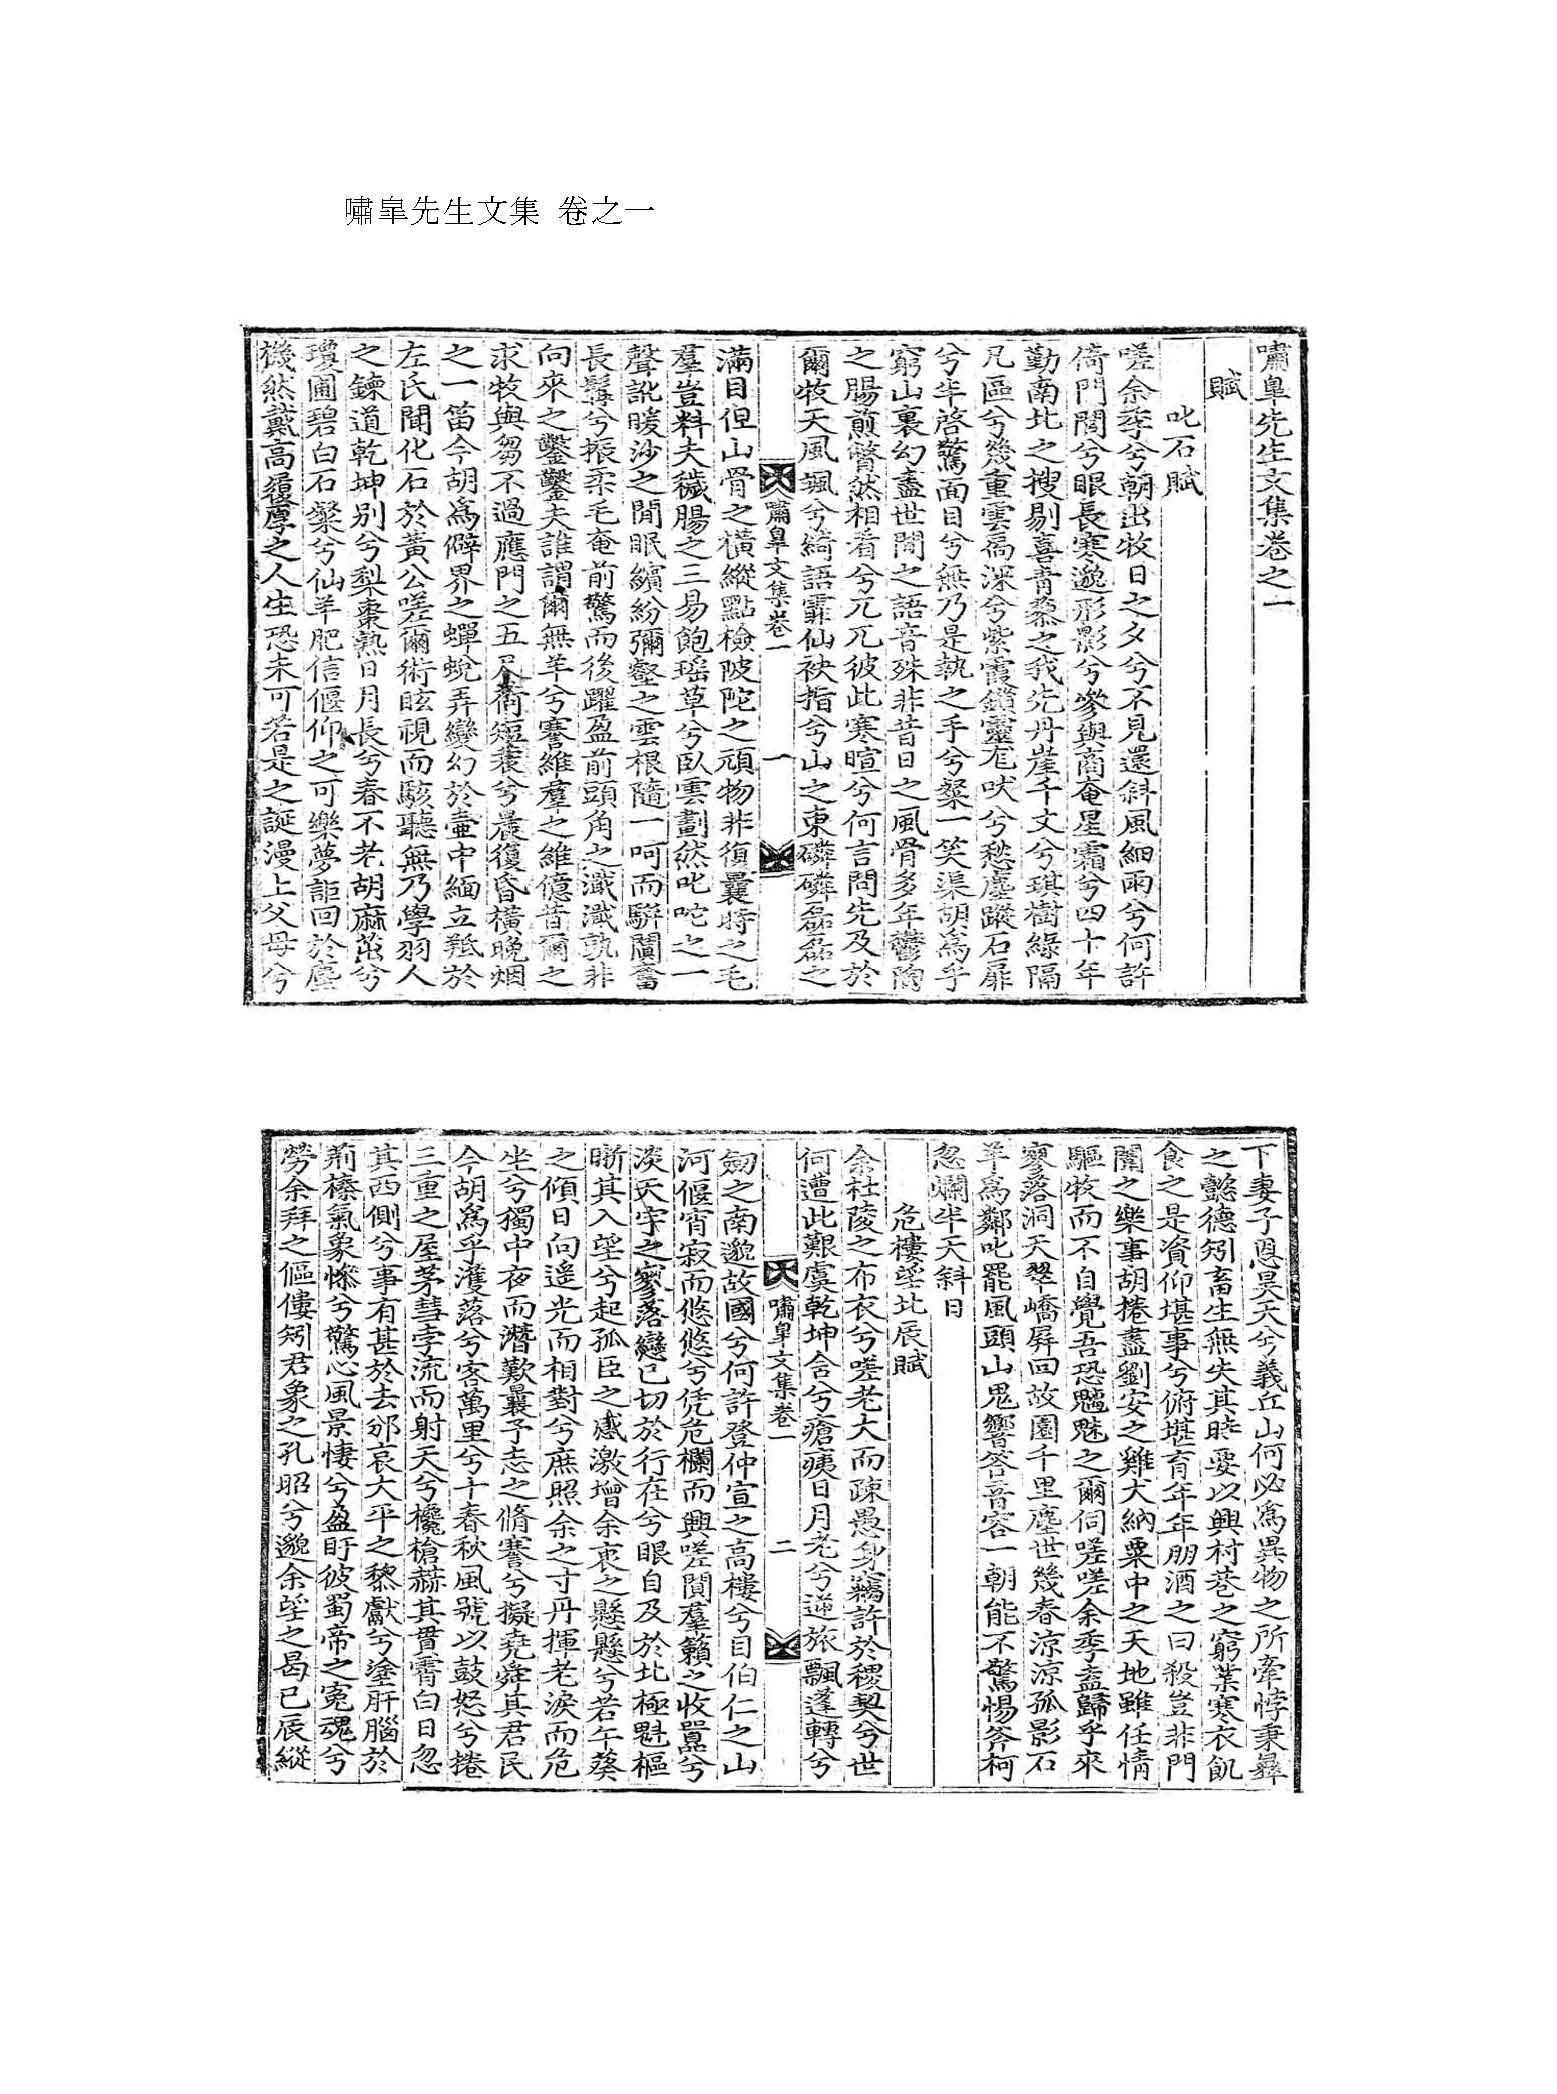 嘯皐先生文集 卷之一
嘯皐先生文集卷之一
賦
叱石賦
嗟余季兮朝出牧日之夕兮不見還斜風細雨兮何許
倚門閭兮眼長寒邈形影兮參與商奄星霜兮四十年
勤南北之搜剔喜青藜之我先丹崖千丈兮琪樹綠隔
凡區兮幾重雲扃深兮紫霞鎖靈尨吠兮愁塵蹤石扉
兮半啓驚面目兮無乃是執之手兮粲一笑渠胡爲乎
窮山裏幻盡世間之語音殊非昔日之風骨多年鬱陶
之腸煎瞥然相看兮兀兀彼此寒暄兮何言問先及於
爾牧天風颯兮綺語霏仙袂指兮山之東磷磷磊磊之
嘯皐文集卷一
一
滿目但山骨之橫縱點檢陂陀之頑物非復曩時之毛
羣豈料夫穢腸之三易飽瑤草兮臥雲劃然叱咜之一
聲訛暖沙之閒眠繽紛彌壑之雲根隨一呵而騈闐奮
長髯兮振柔毛奄前驚而後躍盈前頭角之濈濈孰非
向來之鑿鑿夫誰謂爾無羊兮謇維羣之維億昔爾之
求牧與芻不過應門之五尺衝短蓑兮晨復昏橫晚烟
之一笛今胡爲僻界之蟬蛻弄變幻於壷中緬立羝於
左氏聞化石於黃公嗟爾術眩視而駭聽無乃學羽人
之鍊道乾坤別兮梨棗熟日月長兮春不老胡麻茁兮
瓊圃碧白石粲兮仙羊肥信偃仰之可樂夢詎回於塵
機然戴高履厚之人生恐未可若是之誕漫上父母兮
下妻子恩昊天兮義丘山何必爲異物之所牽悖秉彝
之懿德矧畜生無失其時爰以興村巷之窮業寒衣飢
食之是資仰堪事兮俯堪育年年朋酒之曰殺豈非門
闌之樂事胡捲盡劉安之雞犬納粟中之天地雖任情
驅牧而不自覺吾恐魑魅之爾伺嗟嗟余季盍歸乎來
寥落洞天翠嶠屛回故園千里塵世幾春涼涼孤影石
羊爲鄰叱罷風頭山鬼響答音容一朝能不驚惕斧柯
忽爛半天斜日
危樓望北辰賦
余杜陵之布衣兮嗟老大而疎愚身竊許於稷契兮世
何遭此艱虞乾坤含兮瘡痍日月老兮逆旅飄蓬轉兮
嘯皐文集卷一
二
劒之南邈故國兮何許登仲宣之高樓兮目伯仁之山
河偃宵寂而悠悠兮凭危欄而興嗟閴羣籟之收嚣兮
淡天宇之寥落戀已切於行在兮眼自及於北極魁樞
晰其入望兮起孤臣之感激增余衷之懸懸兮若午葵
之傾日向遥光而相對兮庶照余之寸丹揮老淚而危
坐兮獨中夜而潛歎曩予志之脩謇兮擬堯舜其君民
今胡爲乎濩落兮客萬里兮十春秋風號以鼓怒兮捲
三重之屋茅彗孛流而射天兮欃槍赫其貫霄白日忽
其西側兮事有甚於去邠哀大平之黎獻兮塗肝腦於
荊榛氣象慘兮驚心風景悽兮盈盱彼蜀帝之寃魂兮
勞余拜之傴僂矧君象之孔昭兮邈余望之曷已辰縱